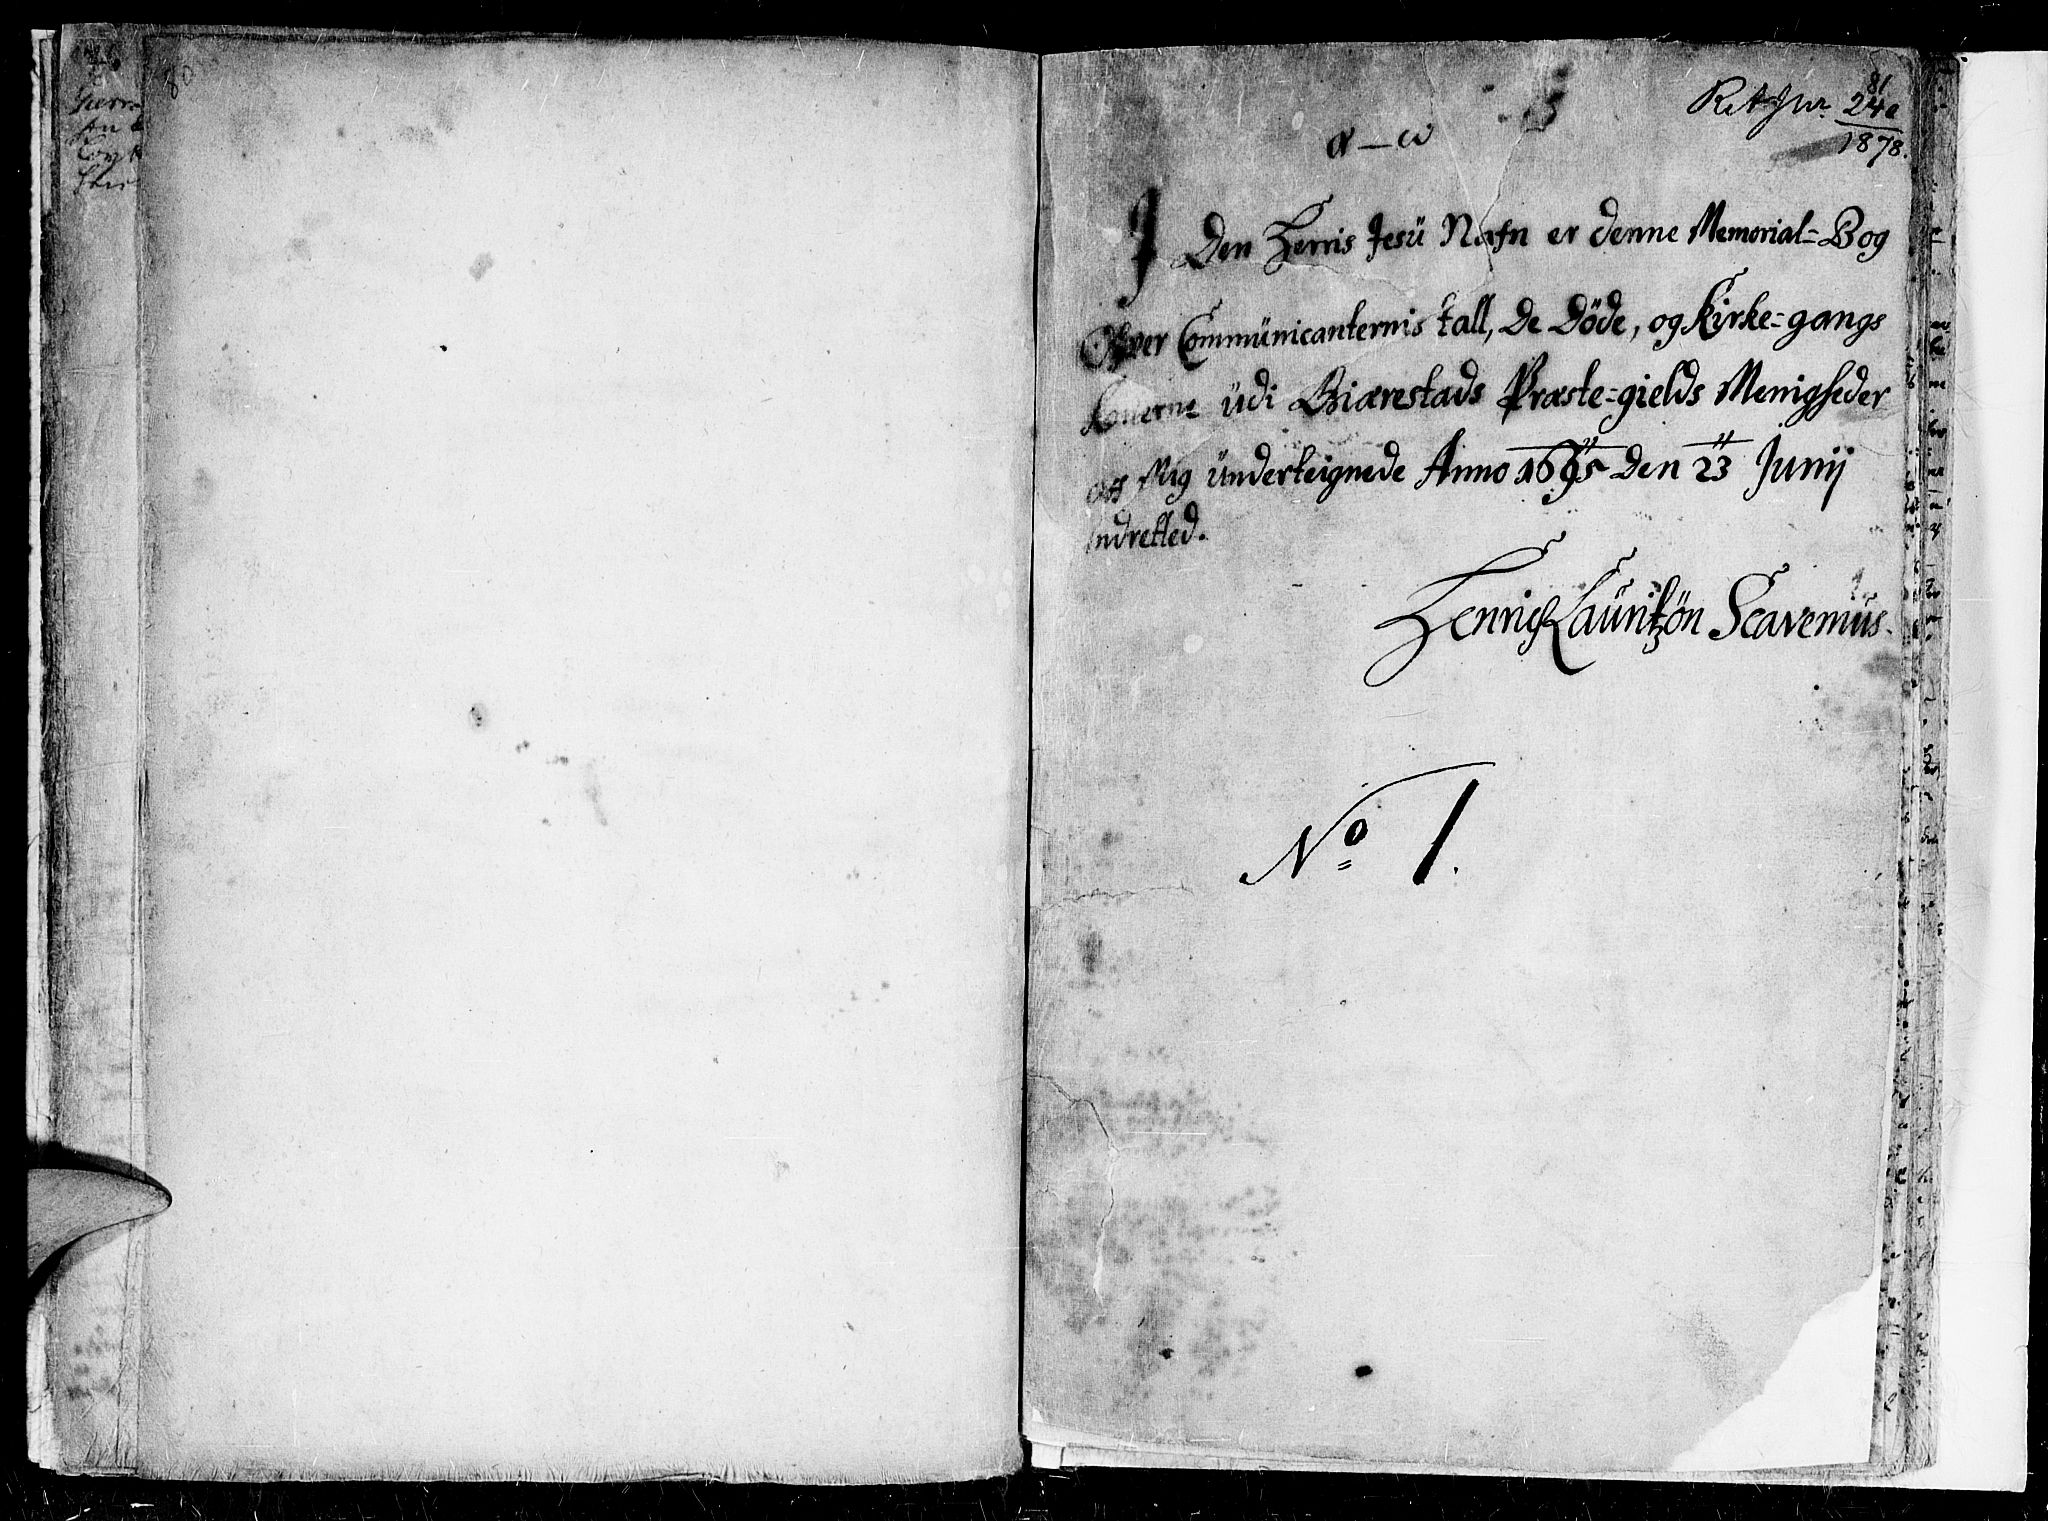 80
81
Ret Jnr. 240
1878.
α — ω
I Den Herris Jesü Nafn er denne Memorial=Bog
Ofver Commünicanternis tall, De Döde, og Kirke=gangs
Konerne üdi Biærestads Præste=gields Menigheder
aff Mig ünderteignede Anno 1695 den 23 Junij
Indretted.
Henrich Lauritzön Scavenius.
No 1.